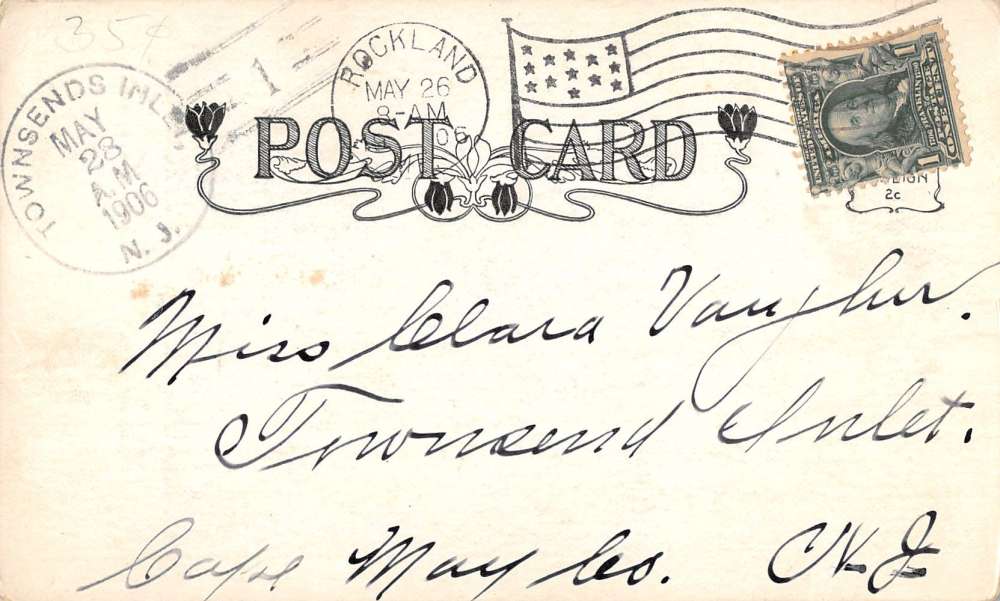 35¢
TOWNSENDS INLET
MAY
28
A.M.
1906
N. J.
1
ROCKLAND
MAY 26
8-AM
06
POST CARD
2c
Miss Clara Vaughn.
Townsend Inlet.
Cape May Co. N.J